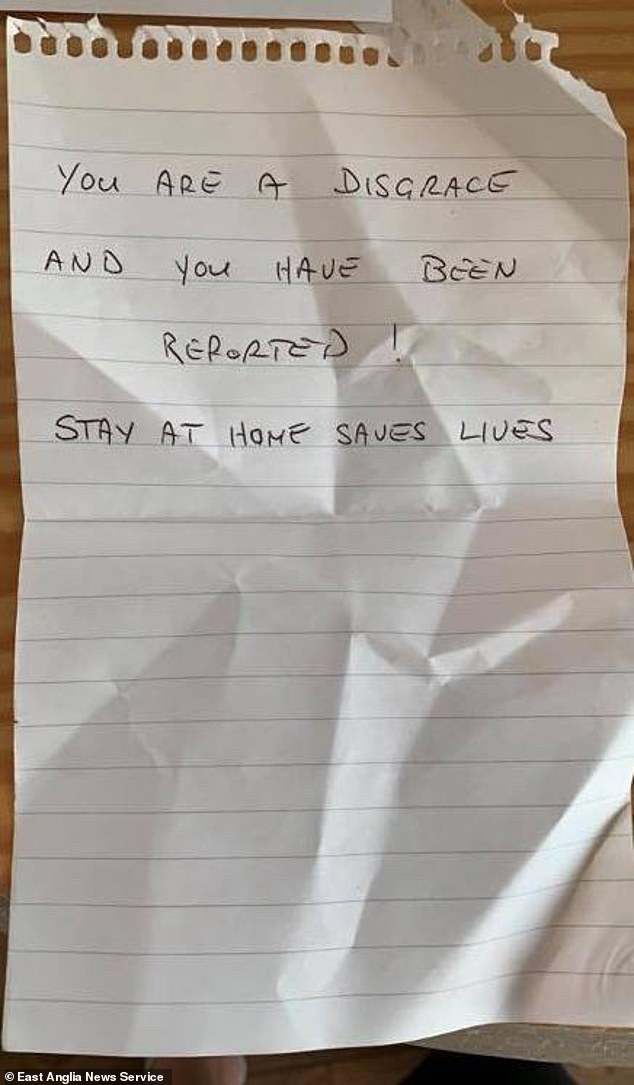 You ARE A DISGRACE
AND you HAVE BEEN
REPORTED !
STAY AT HOME SAVES LIVES
© East Anglia News Service